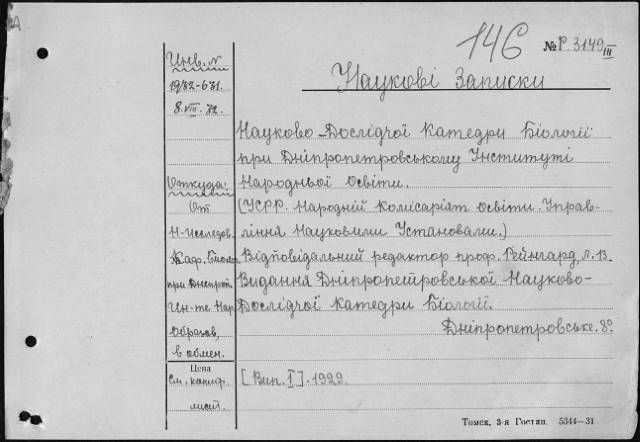 146
№ Р. 3149 III
Наукові Записки
Инв. N
19/32-631.
8.VIII.32.
Науково-Дослідчої Катедри Біології
при Дніпропетровському Інституті
Народньої Освіти.
Откуда:
От
(УСРР. Народній Комісаріят освіти. Управ-
ління Науковими Установами.)
Н-Исследов.
Каф. Биолог.
при Днепроп.
Ин-те Нар.
Образов,
в обмен.
Відповідальний редактор проф. Рейнгард, Л. В.
Видання Дніпропетровської Науково-
Дослідчої Катедри Біології.
Дніпропетровське. 8°
Цена
См. канцф.
лист.
[Вип. I]. 1929.
Томск, 3-я Гостип. 5344—31